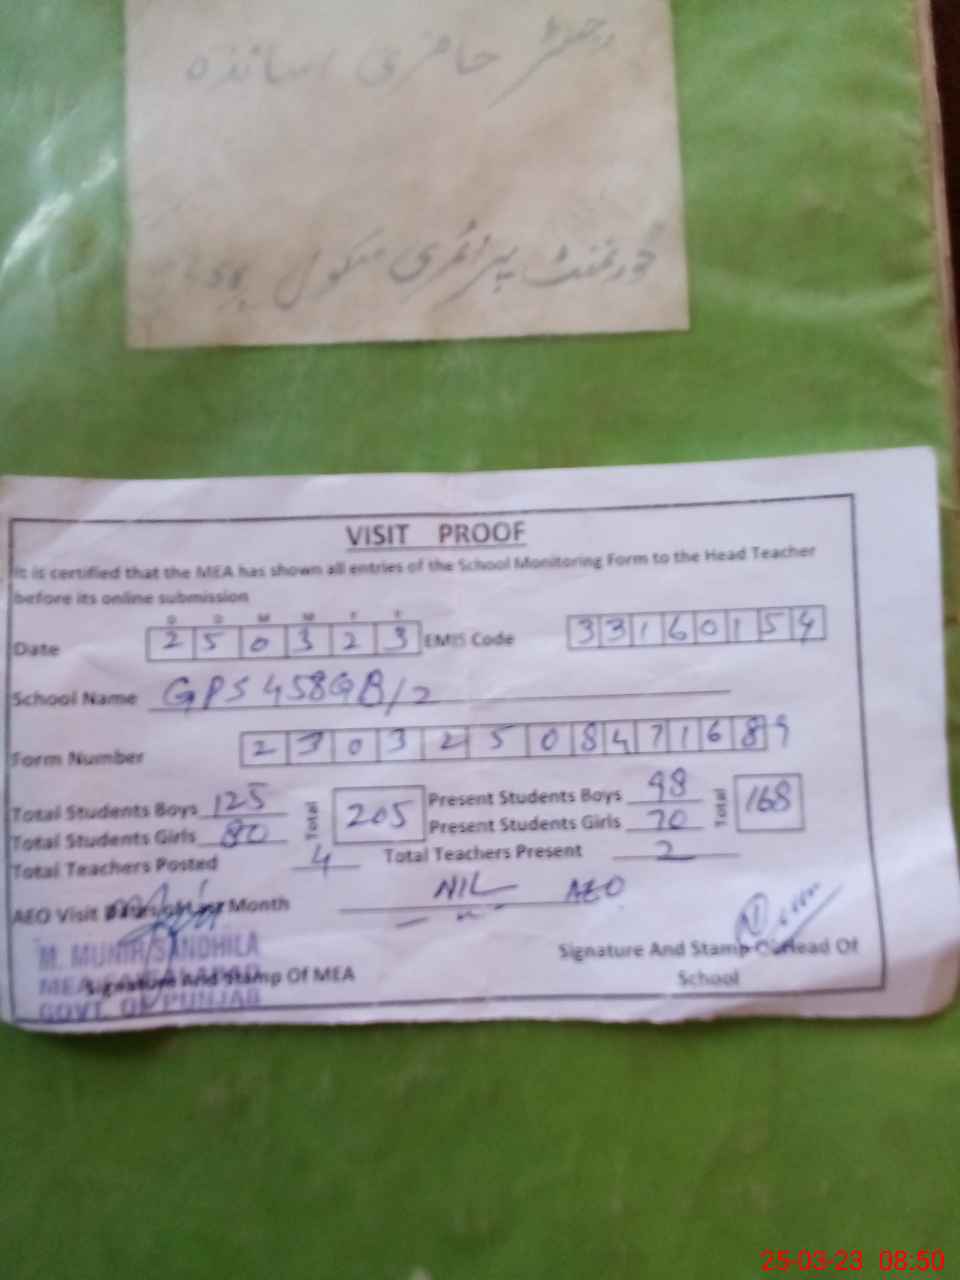 رجسٹر حاضری اساتذہ
گورنمنٹ پرائمری سکول
VISIT PROOF
It is certified that the MEA has shown all entries of the School Monitoring Form to the Head Teacher
before its online submission
D D M M Y Y
Date 2 5 0 3 2 3 EMIS Code 3 3 1 6 0 1 5 4
School Name GPS 458GB/2
Form Number 2 3 0 3 2 5 0 8 4 7 1 6 8 9
Total Students Boys 125 Total 205 Present Students Boys 98 Total 168
Total Students Girls 80 Present Students Girls 70
Total Teachers Posted 4 Total Teachers Present 2
AEO Visit During Last Month NIL AEO
M. MUNIR SANDHILA
MEA FAISALABAD
GOVT. OF PUNJAB
Signature And Stamp Of MEA
Signature And Stamp Of Head Of
School
25-03-23 08:50